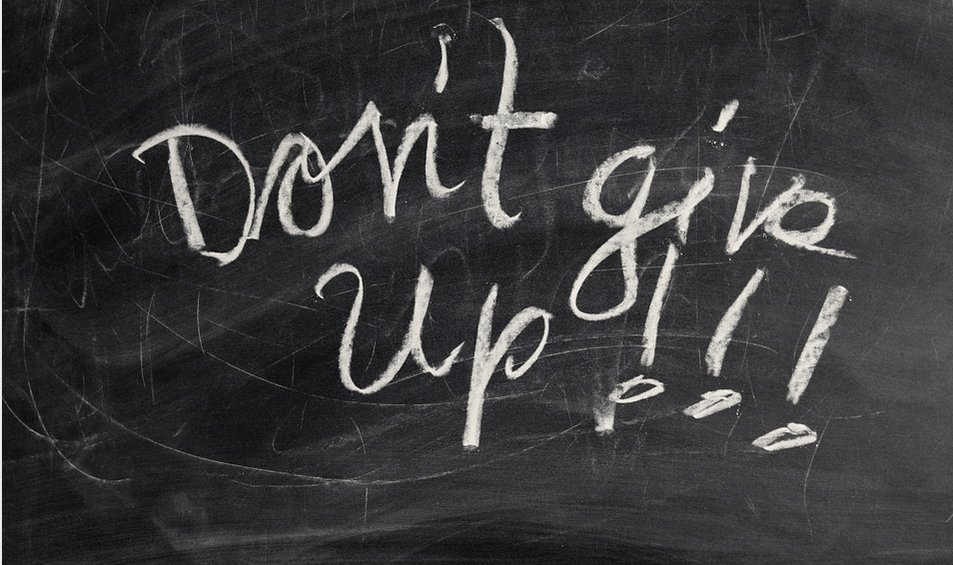 Don't give
Up!!!